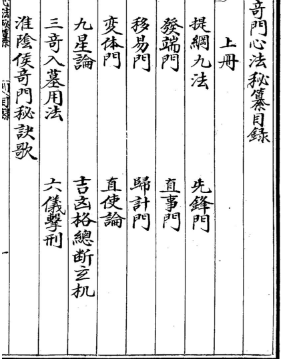 奇門心法秘纂目錄
上册
提綱九法
先鋒門
發端門
直事門
移易門
歸計門
变体門
直使論
九星論
吉凶格總断玄机
三奇入墓用法
六儀擊刑
淮陰侯奇門秘訣歌